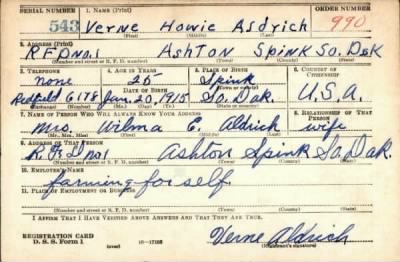 SERIAL NUMBER 1. NAME (Print) ORDER NUMBER
543 Verne Howie Asdrich 990
(First) (Middle) (Last)
2. ADDRESS (Print)
RFD No. 1 Ashton Spink So. Dak
(Number and street or R. F. D. number) (Town) (County) (State)
3. TELEPHONE 4. AGE IN YEARS 5. PLACE OF BIRTH 6. COUNTRY OF CITIZENSHIP
none 25 Spink
DATE OF BIRTH (Town or county)
Redfield 6178 Jan. 20, 1915 So. Dak. U.S.A.
(Exchange) (Number) (Mo.) (Day) (Yr.) (State or country)
7. NAME OF PERSON WHO WILL ALWAYS KNOW YOUR ADDRESS 8. RELATIONSHIP OF THAT PERSON
Mrs. Wilma E Aldrich wife
(Mr., Mrs., Miss) (First) (Middle) (Last)
9. ADDRESS OF THAT PERSON
R.F.D. no. 1 Ashton Spink So. Dak.
(Number and street or R. F. D. number) (Town) (County) (State)
10. EMPLOYER'S NAME
farming for self
11. PLACE OF EMPLOYMENT OR BUSINESS
(Number and street or R. F. D. number) (Town) (County) (State)
I AFFIRM THAT I HAVE VERIFIED ABOVE ANSWERS AND THAT THEY ARE TRUE.
REGISTRATION CARD
D. S. S. FORM 1 Verne Aldrich
(Registrant's signature)